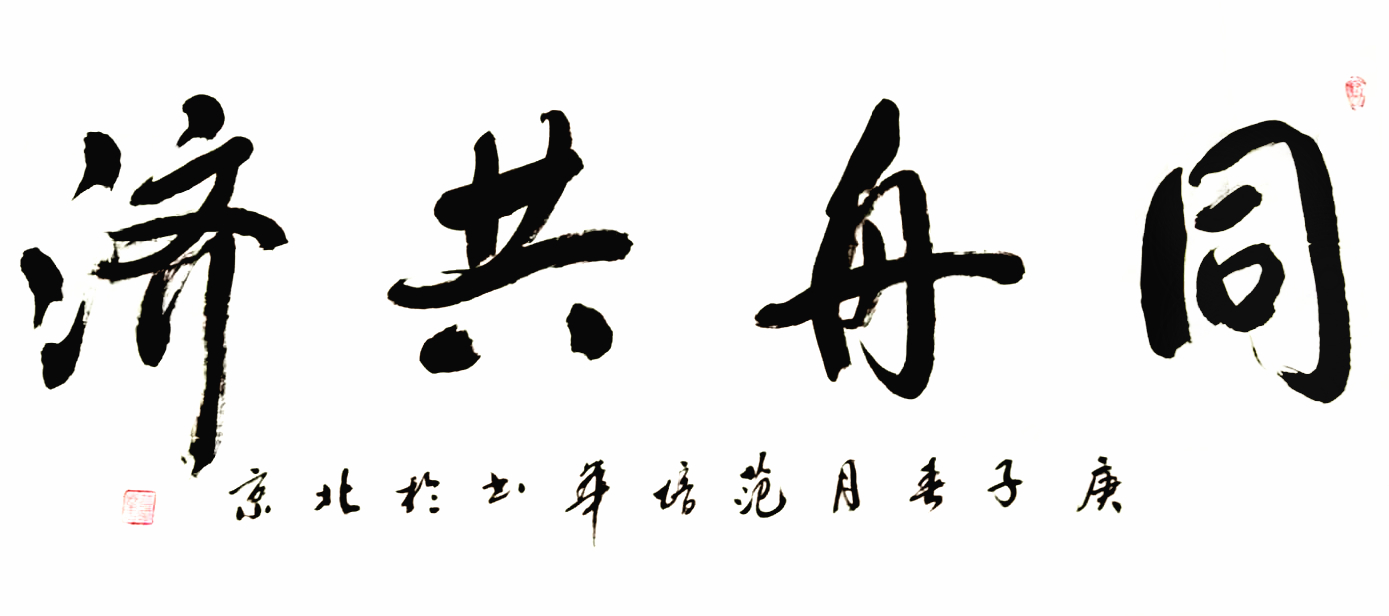 同舟共济
庚子春月范培华书於北京